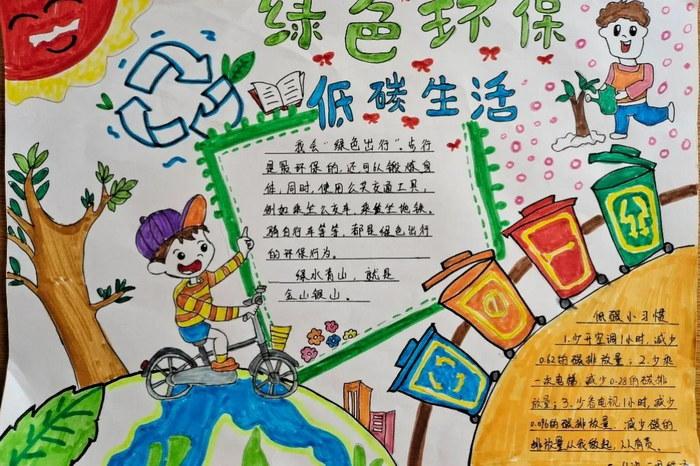 绿色环保
低碳生活
我会“绿色出行”。步行
是最环保的,还可以锻炼身
体,同时,使用公共交通工具,
例如乘坐公交车,乘坐地铁,
骑自行车等等,都是绿色出行
的环保行为。
绿水青山,就是
金山银山。
低碳小习惯
1.少开空调1小时,减少
0.62的碳排放量;2.少乘
一次电梯,减少0.28的碳排
放量;3.少看电视1小时,减少
0.096的碳排放量,减少碳的
排放量从我做起,人人有责。